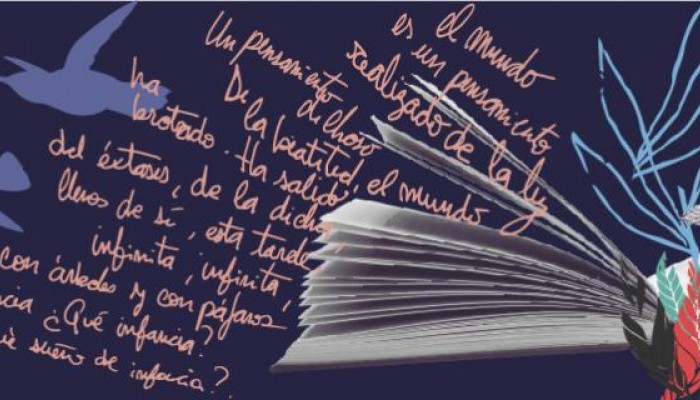 el mundo
es un pensamiento
realizado de la luz
Un pensamiento
dichoso
De la beatitud, el mundo
ha
brotado. Ha salido
del éxtasis, de la dicha,
llenos de sí, esta tarde
infinita, infinita,
con árboles y con pájaros
¿Qué infancia?
sueño de infancia?